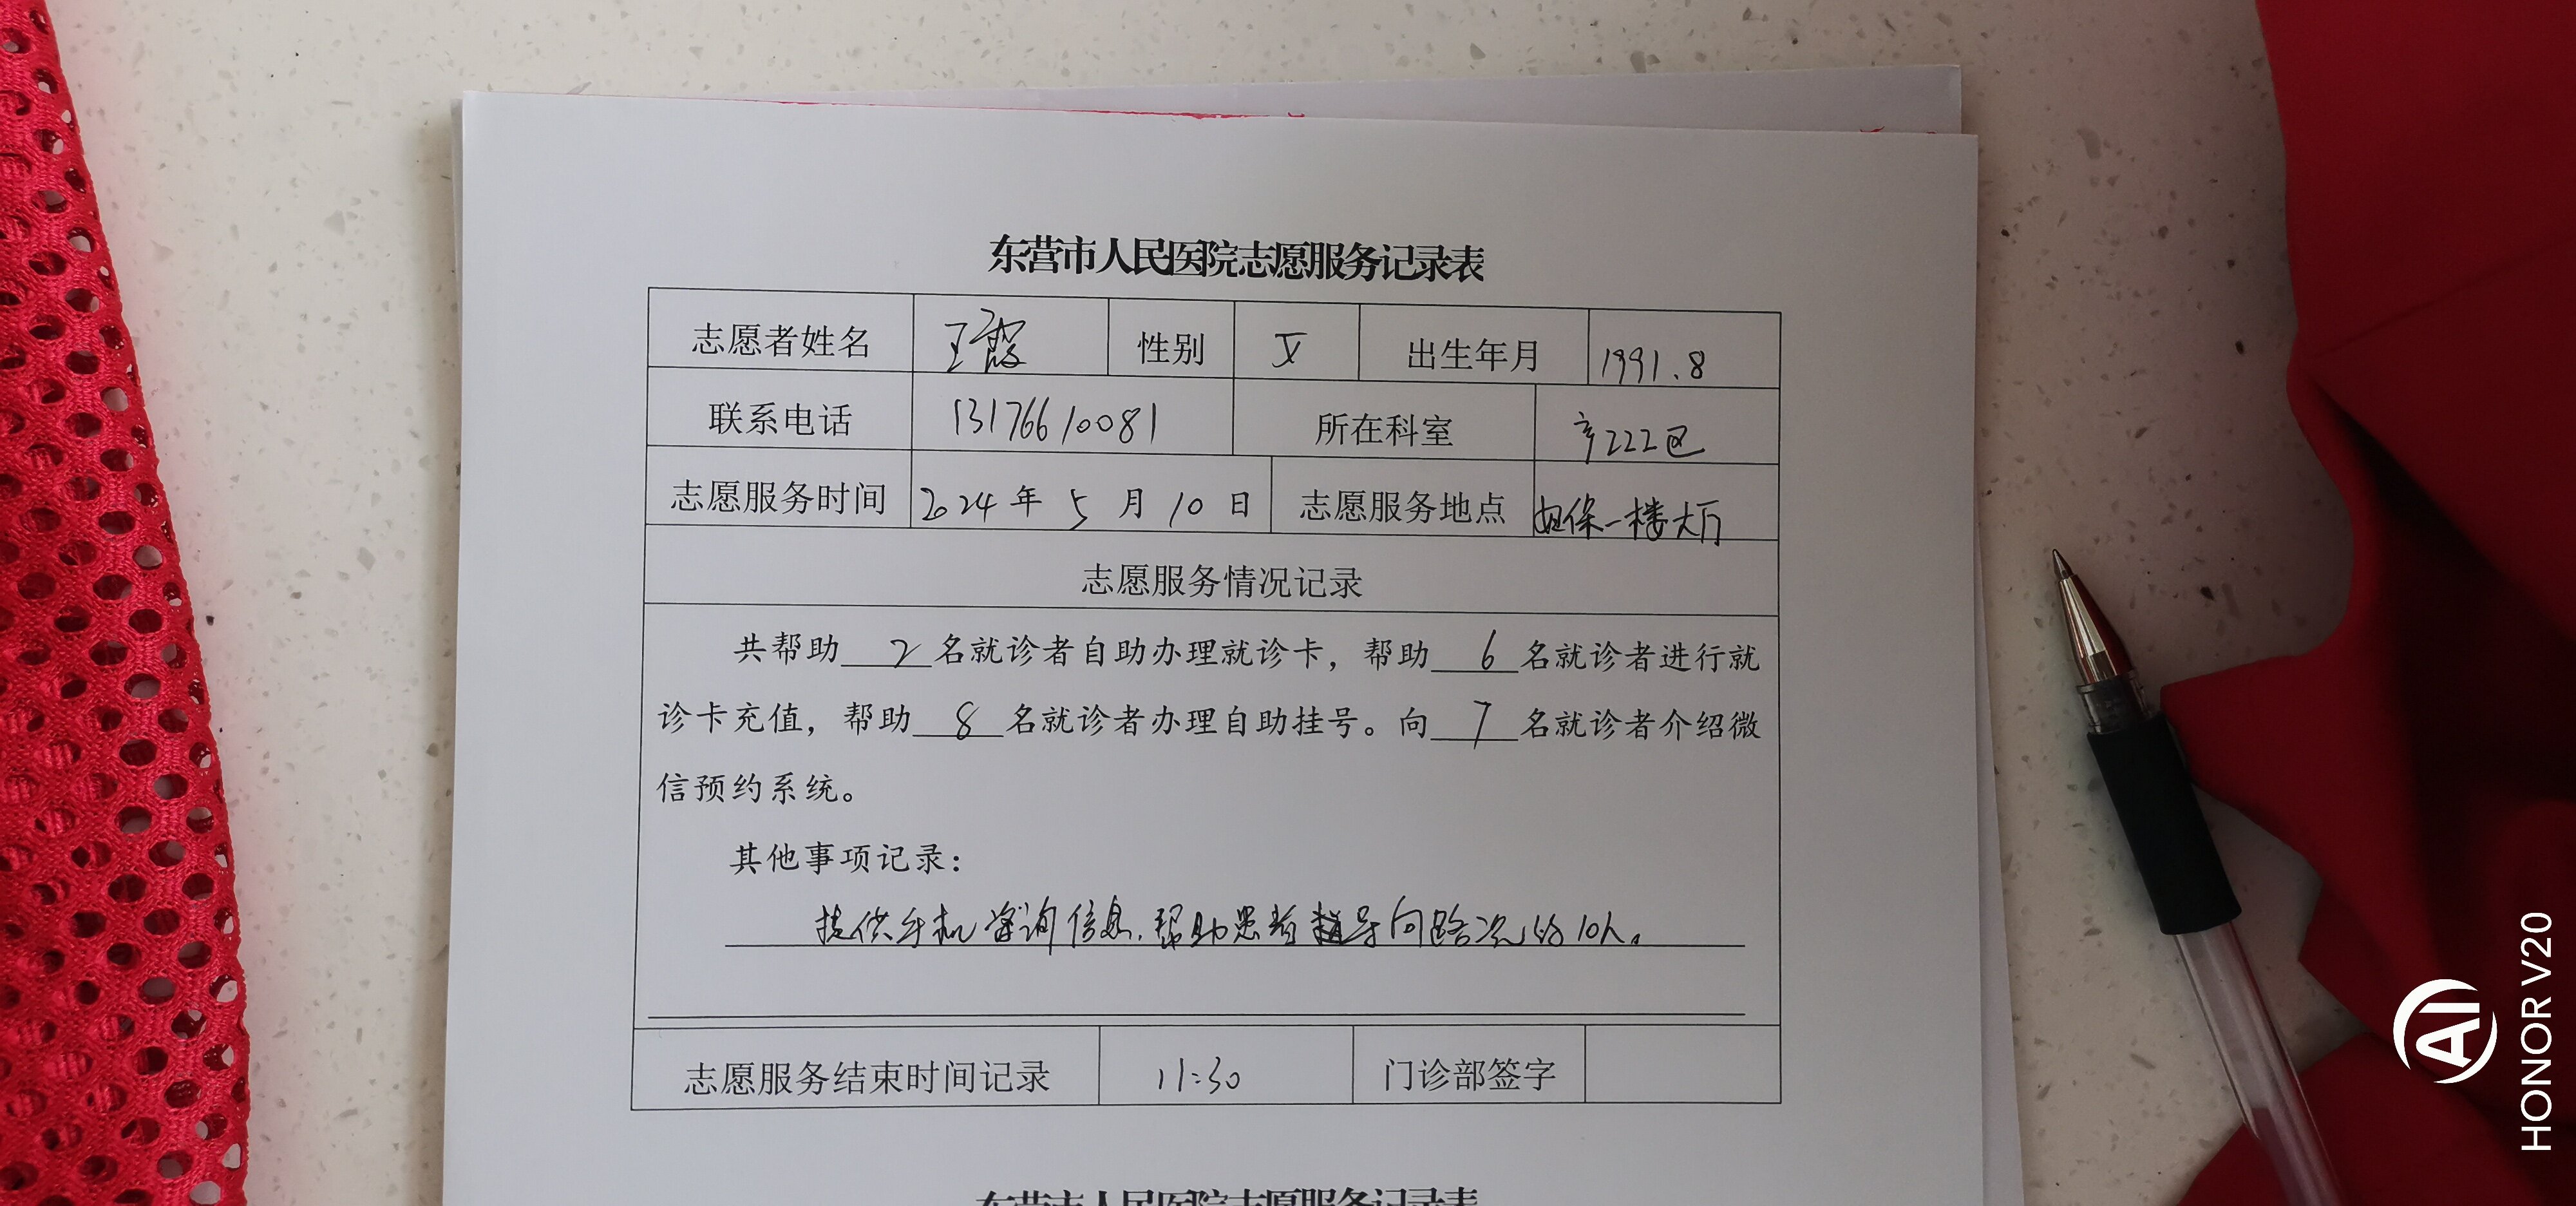 东营市人民医院志愿服务记录表
志愿者姓名 王霞 性别 女 出生年月 1991.8
联系电话 13176610081 所在科室 产222区
志愿服务时间 2024年 5 月 10 日 志愿服务地点 妇保一楼大厅
志愿服务情况记录
共帮助 2 名就诊者自助办理就诊卡，帮助 6 名就诊者进行就
诊卡充值，帮助 8 名就诊者办理自助挂号。向 7 名就诊者介绍微
信预约系统。
其他事项记录：
提供手机咨询信息，帮助患者指导问路次约10人。
志愿服务结束时间记录 11:30 门诊部签字
东营市人民医院志愿服务记录表
AI
HONOR V20